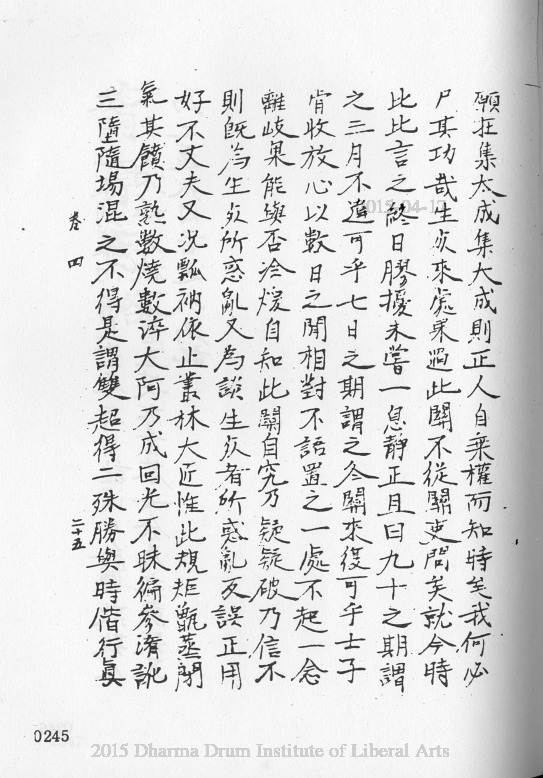 願狂集大成集大成則正人自乘權而知時矣我何必
尸其功哉生死來處果過此關不從關吏問矣就今時
比比言之終日膠擾未嘗一息靜正且曰九十之期謂
之三月不違可乎七日之期謂之冬關來復可乎士子
肯收放心以數日之間相對不語置之一處不起一念
離岐果能與否冷煖自知此關自究乃疑疑破乃信不
則既為生死所惑亂又為談生死者所惑亂反誤正用
好不丈夫又況瓢衲依止叢林大匠惟此規矩甑蒸閉
氣其饙乃熟數燒數淬大阿乃成回光不昧徧參淆訛
三墮隨場混之不得是謂雙超得二殊勝與時偕行真
卷四
二十五
0245
2015-04-17
2015 Dharma Drum Institute of Liberal Arts